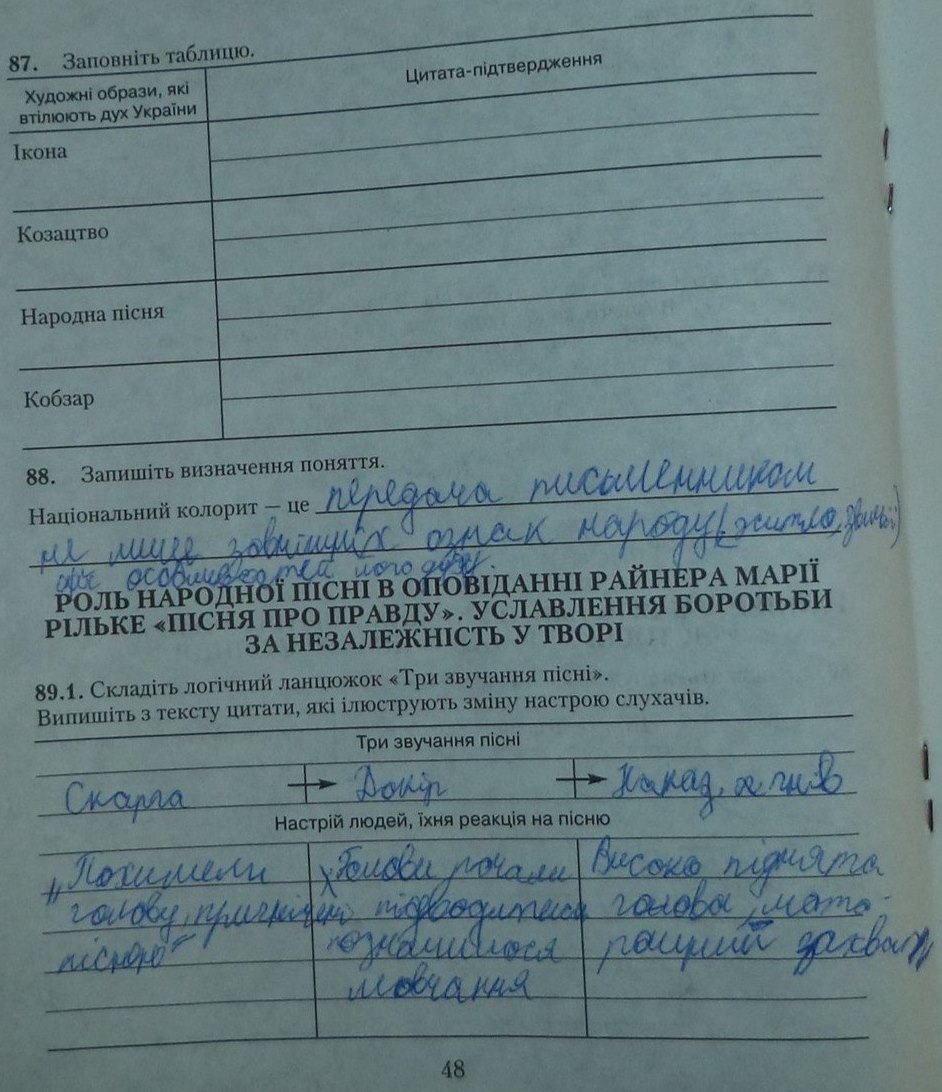 87. Заповніть таблицю.
Художні образи, які втілюють дух України
Цитата-підтвердження
Ікона
Козацтво
Народна пісня
Кобзар
88. Запишіть визначення поняття.
Національний колорит – це передача письменником
не лише зовнішніх ознак народу (житло, звичаї)
особливостей його духу.
РОЛЬ НАРОДНОЇ ПІСНІ В ОПОВІДАННІ РАЙНЕРА МАРІЇ
РІЛЬКЕ «ПІСНЯ ПРО ПРАВДУ». УСЛАВЛЕННЯ БОРОТЬБИ
ЗА НЕЗАЛЕЖНІСТЬ У ТВОРІ
89.1. Складіть логічний ланцюжок «Три звучання пісні».
Випишіть з тексту цитати, які ілюструють зміну настрою слухачів.
Три звучання пісні
Скарга → Докір → Наказ, гнів
Настрій людей, їхня реакція на пісню
"Похилили
голову, пригнічені
піснею"
Голови почали
підводитися
мовчання
Високо піднята
голова
захват"
48